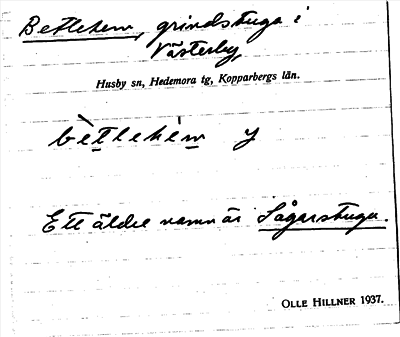 Betlehem, grindstuga i
Västerby,
Husby sn, Hedemora tg, Kopparbergs län.
bètlehém y
Ett äldre namn är Sågarstuga.
OLLE HILLNER 1937.